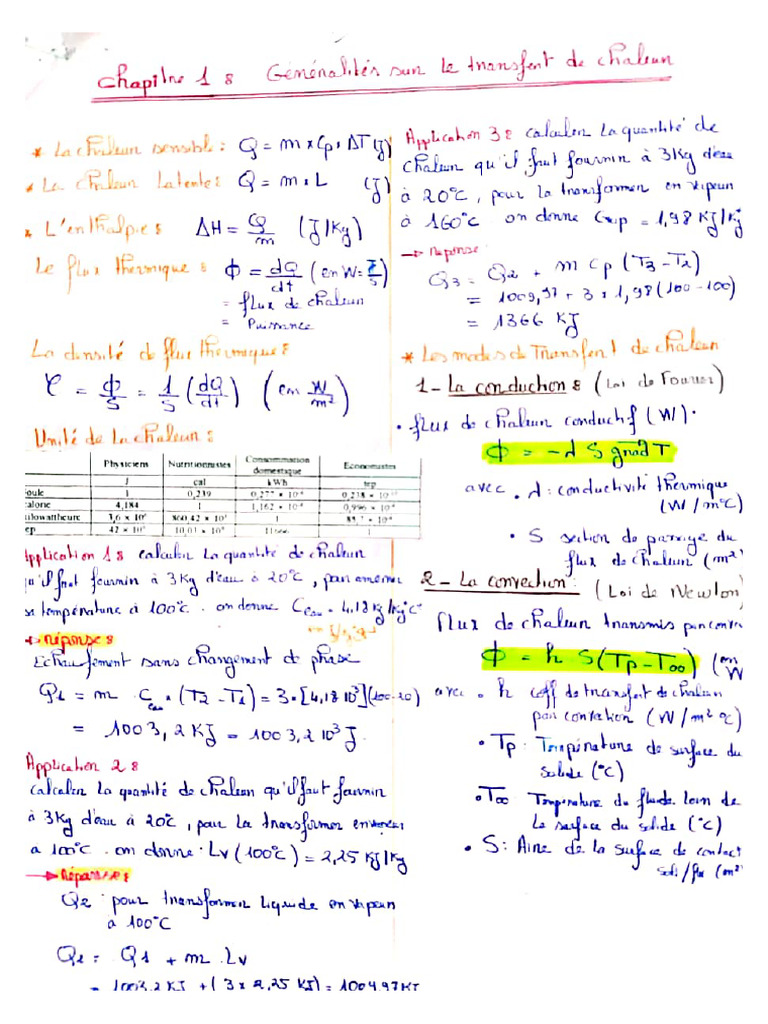 Chapitre 1 : Généralités sur le transfert de chaleur
* La chaleur sensible : Q = m × Cp × ΔT (J)
* La chaleur Latente : Q = m × L (J)
* L'enthalpie : ΔH = Q/m (J/Kg)
Le flux thermique : Φ = dQ/dt (en W = J/s)
= flux de chaleur
= Puissance
La densité de flux thermique :
φ = Φ/S = 1/S (dQ/dt) (en W/m²)
Unité de la chaleur :
Physiciens Nutritionnistes Consommation domestique Economistes
J cal kWh tep
oule 1 0,239 0,277 × 10⁻⁶
alorie 4,184 1 1,162 × 10⁻⁶
ilowattheure 3,6 × 10⁶ 860,42 × 10³ 1
ep 42 × 10⁹ 10,03 × 10⁹ 11666 1
Application 1 : calculer la quantité de chaleur
qu'il faut fournir à 3Kg d'eau à 20°C, pour amener
sa température à 100°C. on donne Ceau = 4,18
Réponse :
Echauffement sans changement de phase
Q1 = m Ceau × (T2 - T1) = 3 × [4,18 10³](100-20)
= 1003,2 KJ = 1003,2 10³ J.
Application 2 :
calculer la quantité de chaleur qu'il faut fournir
à 3Kg d'eau à 20°C, pour la transformer en vapeur
a 100°C. on donne Lv (100°C) = 2,25 KJ/Kg
→ Réponse :
Q2 pour transformer liquide en vapeur
à 100°C
Q2 = Q1 + m . Lv
= 1003.2 KJ + (3 × 2,25 KJ) = 1009.97 KJ
Application 3 : calculer la quantité de
chaleur qu'il faut fournir à 3Kg d'eau
à 20°C, pour la transformer en vapeur
à 160°C on donne Cvap = 1,98 KJ/Kg
→ Reponse :
Q3 = Q2 + m Cp (T3 - T2)
= 1009,97 + 3 × 1,98 (100 - 100)
= 1366 KJ
* Les modes de Transfert de chaleur
1- La conduction : (Loi de Fourier)
• flux de chaleur conductif (W).
Φ = -λ S grad T
avec • λ : conductivité thermique
(W/m°C)
• S section de passage du
flux de chaleur (m²)
2 - La convection : (Loi de Newton)
flux de chaleur transmis par
Φ = h S (Tp - T∞) (en W
avec • h coff de transfert de chaleur
par convection (W/m² °C)
• Tp : Température de surface du
solide (°C)
• T∞ Température du fluide loin de
la surface du solide (°C)
• S : Aire de la surface de contact
(m²